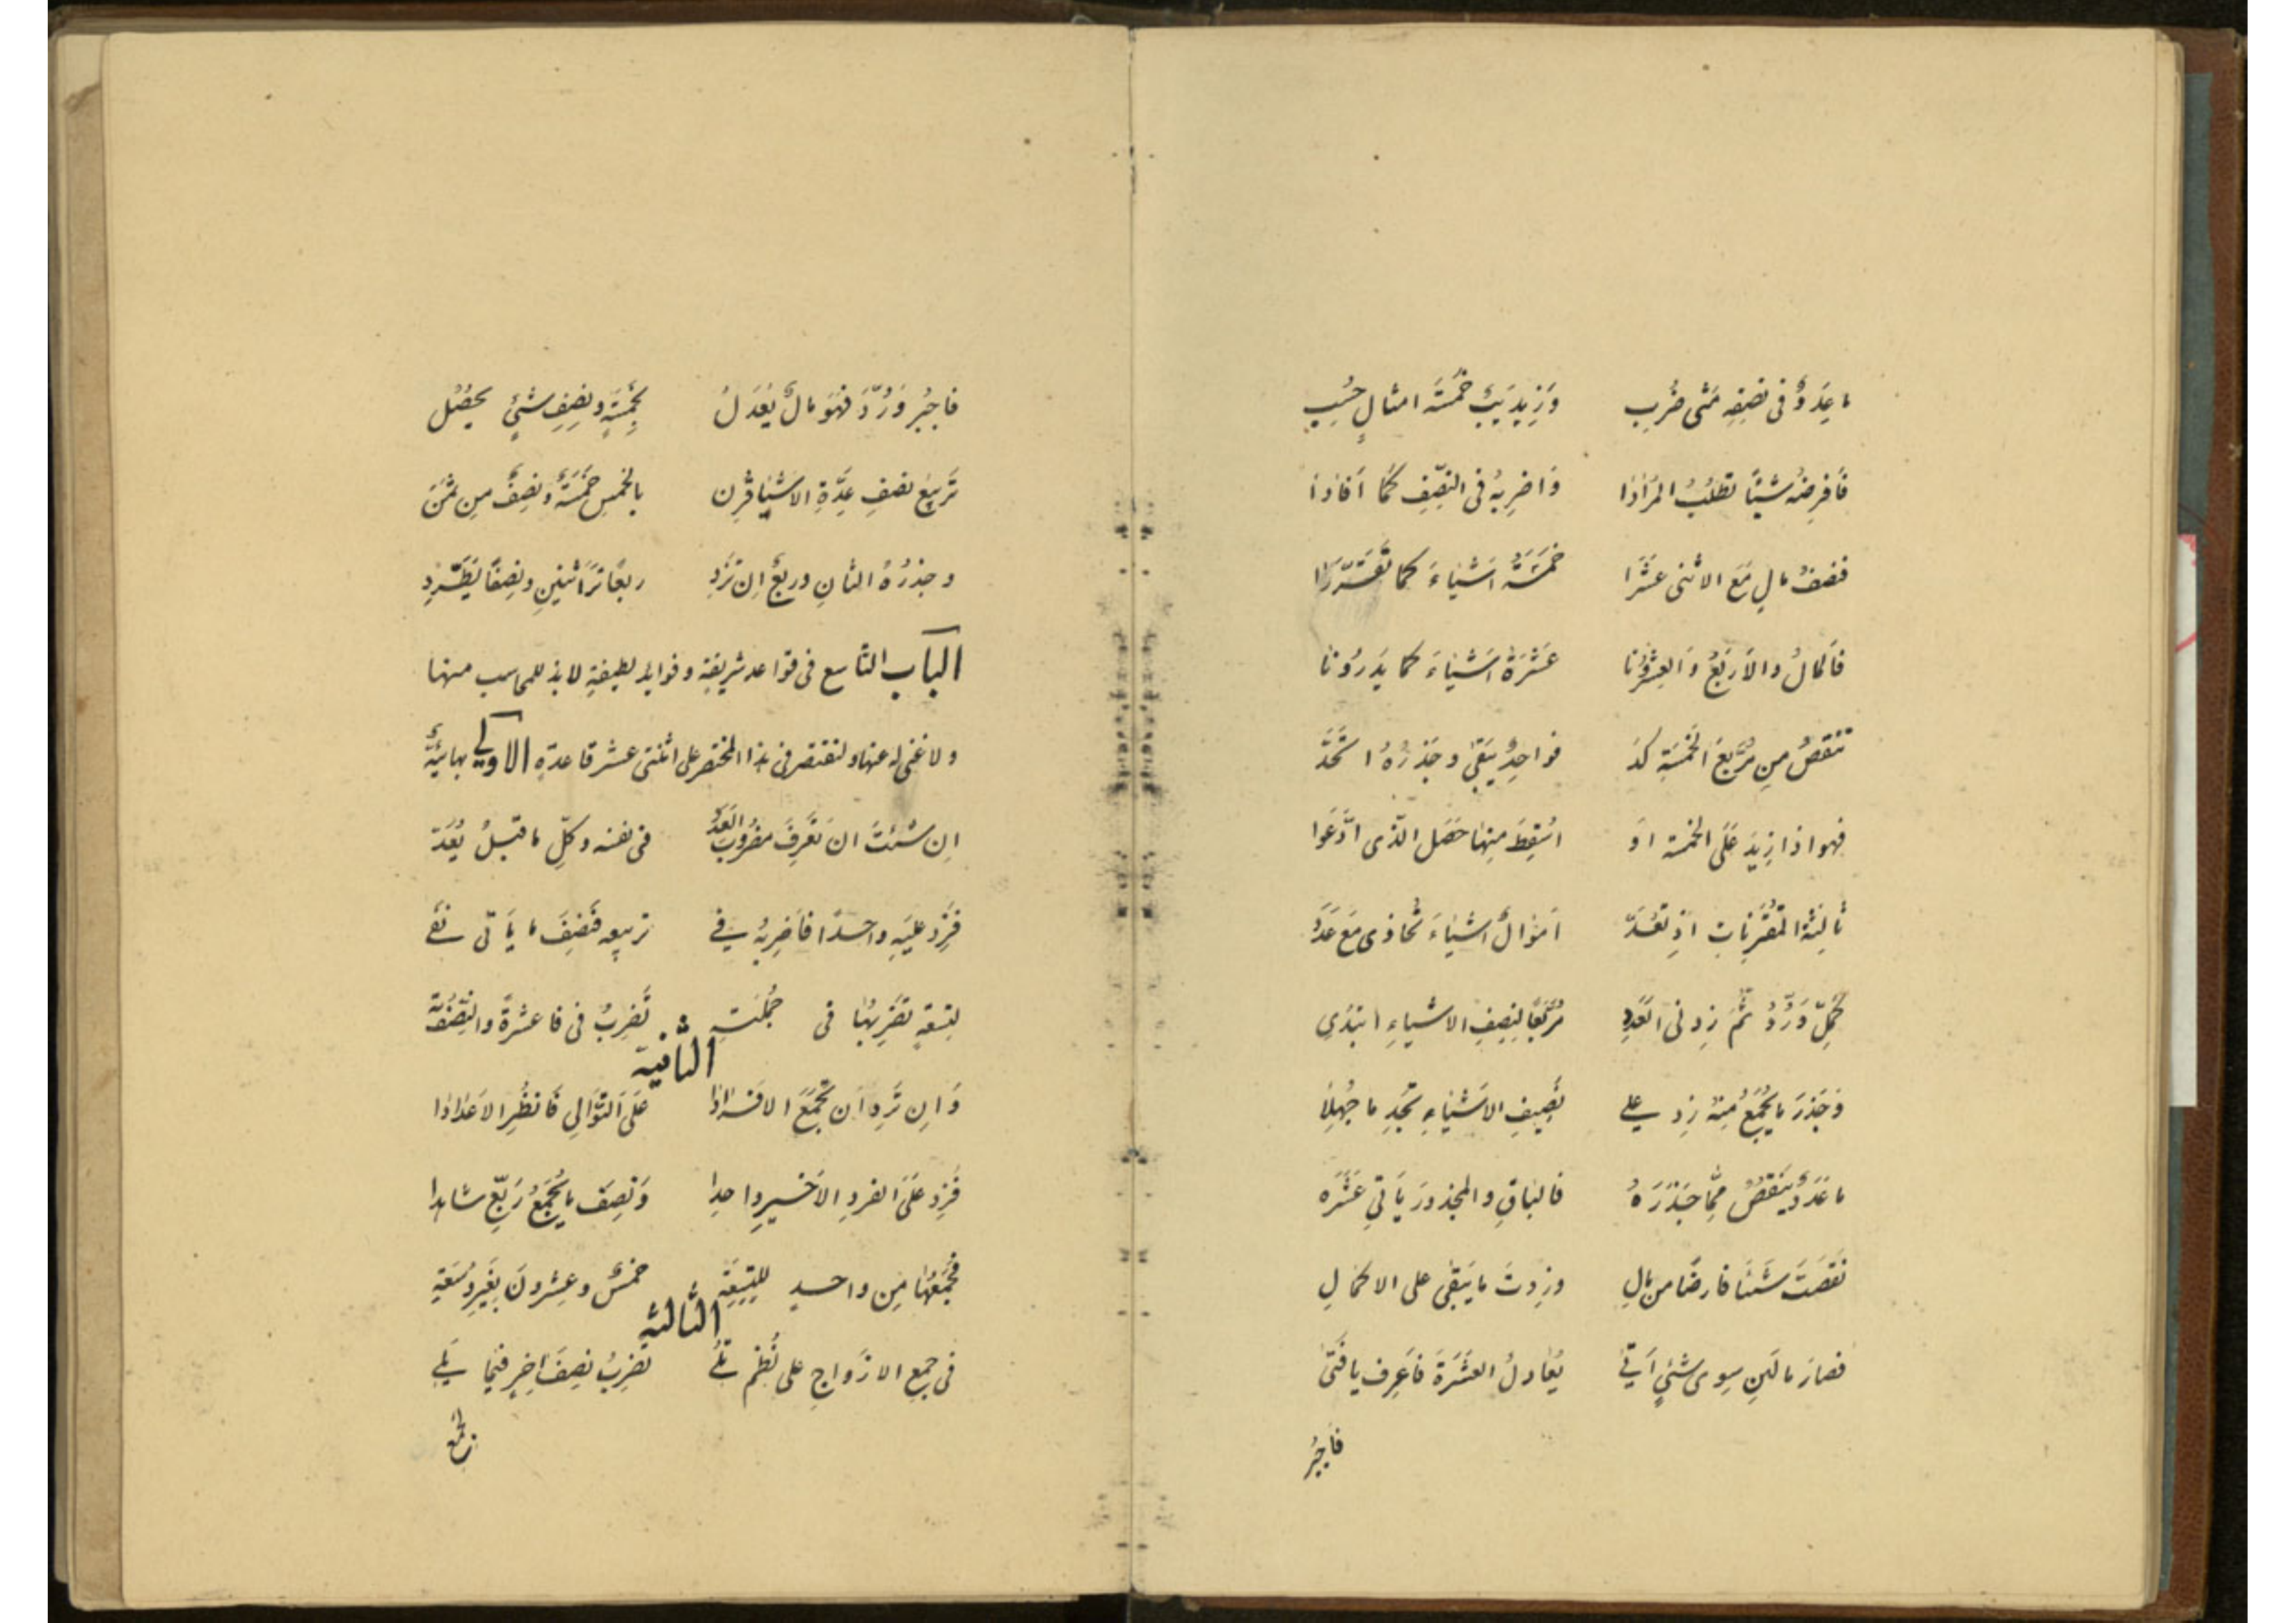 ما عددٌ فى نصفه متى ضُرِب وزيد يب خمسة امثالٍ حُسِب
فافرضه شيئًا تطلب المرادا واضربه فى النصف كما افادا
فنصفُ مالٍ مع الاثنى عشرا خمسةُ اشياءَ كما تقررا
فالمالُ والاربعُ والعشرونا عشرةُ اشياءَ كما يدرونا
تنقص من مربع الخمسة كد فواحدٌ يبقى وجذرُهُ اتحد
فهو اذا زيد على الخمسة او اسقط منها حصل الذى ادعوا
ثالثة المقترنات اذ تعد اموالٌ اشياءَ تحاذى مع عدد
كمل ورُدَّ ثم زد فى العدد مربعًا لنصف الاشياء ابتدى
وجذرَ ما يجمع منه زد على نصيف الاشياء تجد ما جهلا
ما عددٌ ينقص مما جذره فالباق والمجذور يأتى عشره
نقصت شيئًا فارضًا من مالِ وزدت ما يبقى على الاكمالِ
فصار مالين سوى شئٍ أتى يعادلُ العشرةَ فاعرف يا فتى
فاجبُر
فاجبُر ورُدَّ فهو مالٌ يعدلُ بخمسةٍ ونصف شئٍ يحصُل
تربيعُ نصفِ عدّةِ الاشيا قرن بالخمس خمسةٌ ونصفٌ من ثمن
وجذرُهُ اثنانِ وربعٌ ان تزد ربعًا تر اثنينِ ونصفًا يطّرد
الباب التاسع فى قواعد شريفة وفوايد لطيفة لابد للمحاسب منها
ولا غنى له عنها ولنقتصر فى هذا المختصر على اثنتى عشر قاعدة الاولى بهائيّة
ان شئت ان تعرف مضروب العدد فى نفسه وكلِّ ما قبلُ يُعَد
فزد عليه واحدًا فاضربه فى تربيعه فنصف ما يأتى نفى
لتسعةٍ تضربها فى جملته تضربُ فى فا عشرةً والنصف ته
الثانية
وان ترد ان تجمع الافرادا على التوالى فانظر الاعدادا
فزد على الفرد الاخير واحدا ونصف ما يجمع ربّع شاهدا
فجمعها من واحدٍ للتسعة خمسٌ وعشرون بغيرِ سَعَةِ
الثالثة
فى جمع الازواج على نظم تلى تضربُ نصفَ اخيرٍ فيما يلى